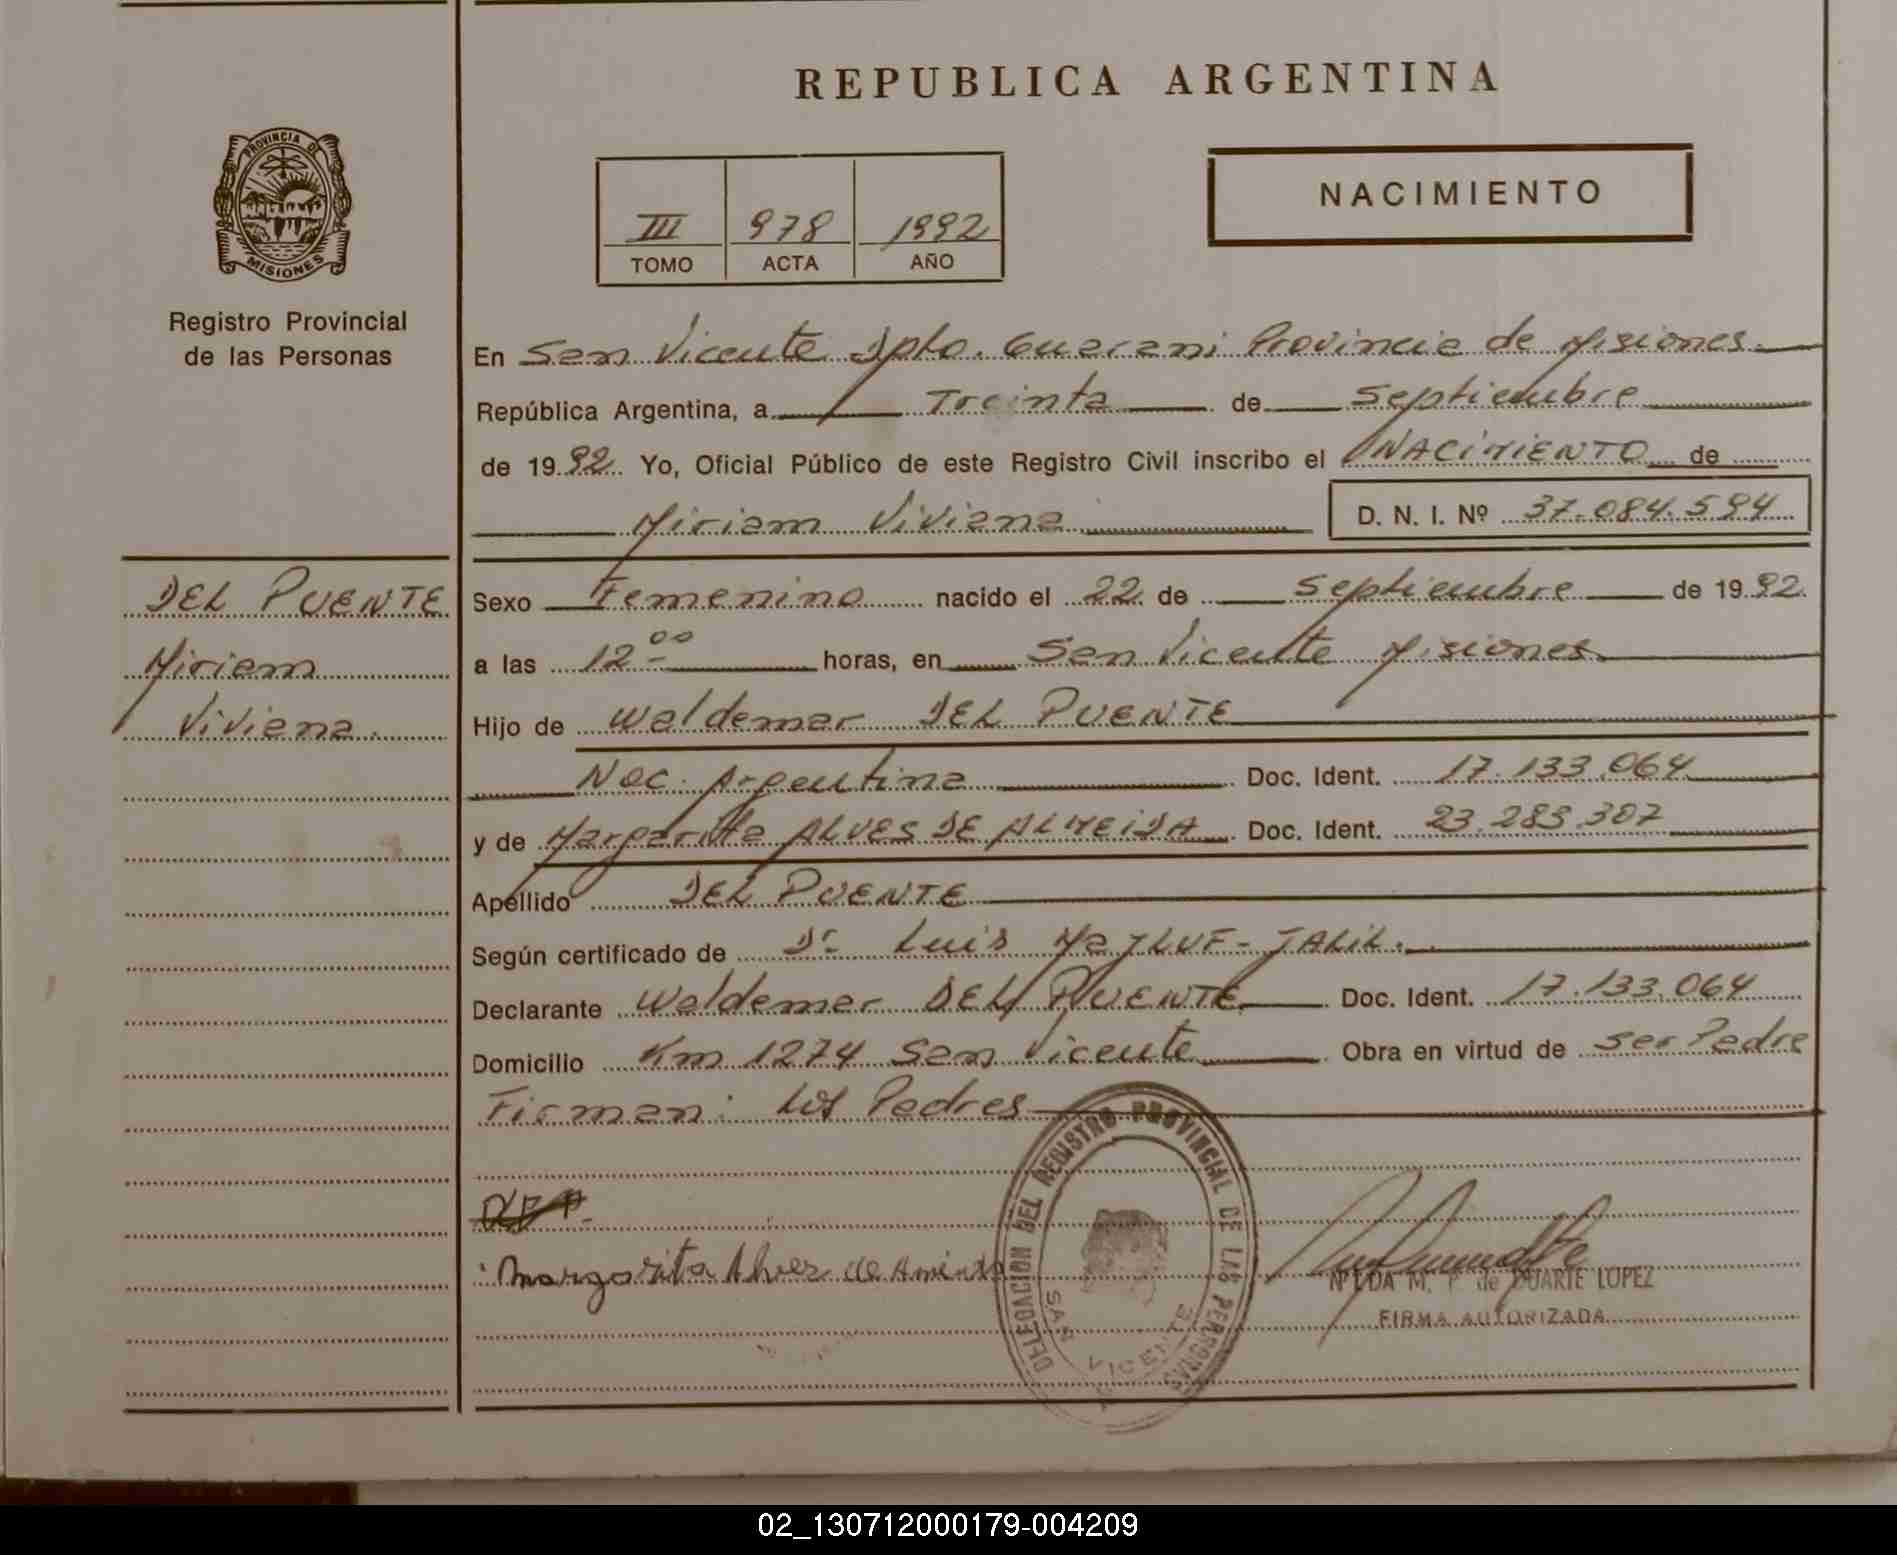 REPUBLICA ARGENTINA
PROVINCIA DE
MISIONES
NACIMIENTO
III 978 1992
TOMO ACTA AÑO
Registro Provincial
de las Personas
En San Vicente Dpto. Guarani Provincia de Misiones.
República Argentina, a Treinta de Septiembre
de 1992. Yo, Oficial Público de este Registro Civil inscribo el NACIMIENTO de
Miriam Viviana D. N. I. Nº 37.084.594
DEL PUENTE
Miriam
Viviana.
Sexo Femenino nacido el 22 de Septiembre de 1992.
a las 12 00 horas, en San Vicente Misiones
Hijo de Waldemar DEL PUENTE
Nac. Argentina Doc. Ident. 17.133.064
y de Margarita ALVES DE ALMEIDA Doc. Ident. 23.283.307
Apellido DEL PUENTE
Según certificado de Dr Luis JALIL.
Declarante Waldemar DEL PUENTE Doc. Ident. 17.133.064
Domicilio Km 1274 San Vicente Obra en virtud de ser Padre
Firman: los Padres
DELEGACION DEL REGISTRO PROVINCIAL DE LAS PERSONAS
SAN VICENTE
Margarita Alves de
M. P. de DUARTE LOPEZ
FIRMA AUTORIZADA
02_130712000179-004209